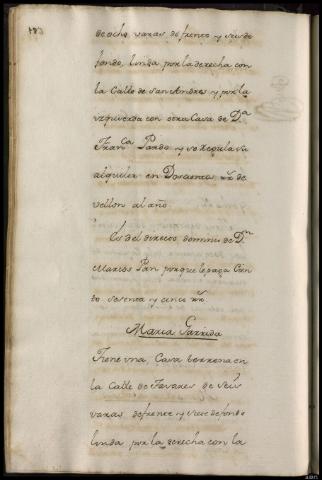 de ocho varas de frente y seis de
fondo, linda por la derecha con
la Calle de San Andres y por la
izquierda con otra Casa de D.ª
Fran.ca Pardo y se regula su
alquiler en Doscientos rr.s de
vellon al año.
Es del directo dominio de D.n
Marcos Pan porque le paga Cien-
to sesenta y cinco rr.s
Maria Garrida
Tiene una Casa terrena en
la Calle de Tavares de seis
varas de frente y siete de fondo
linda por la derecha con la